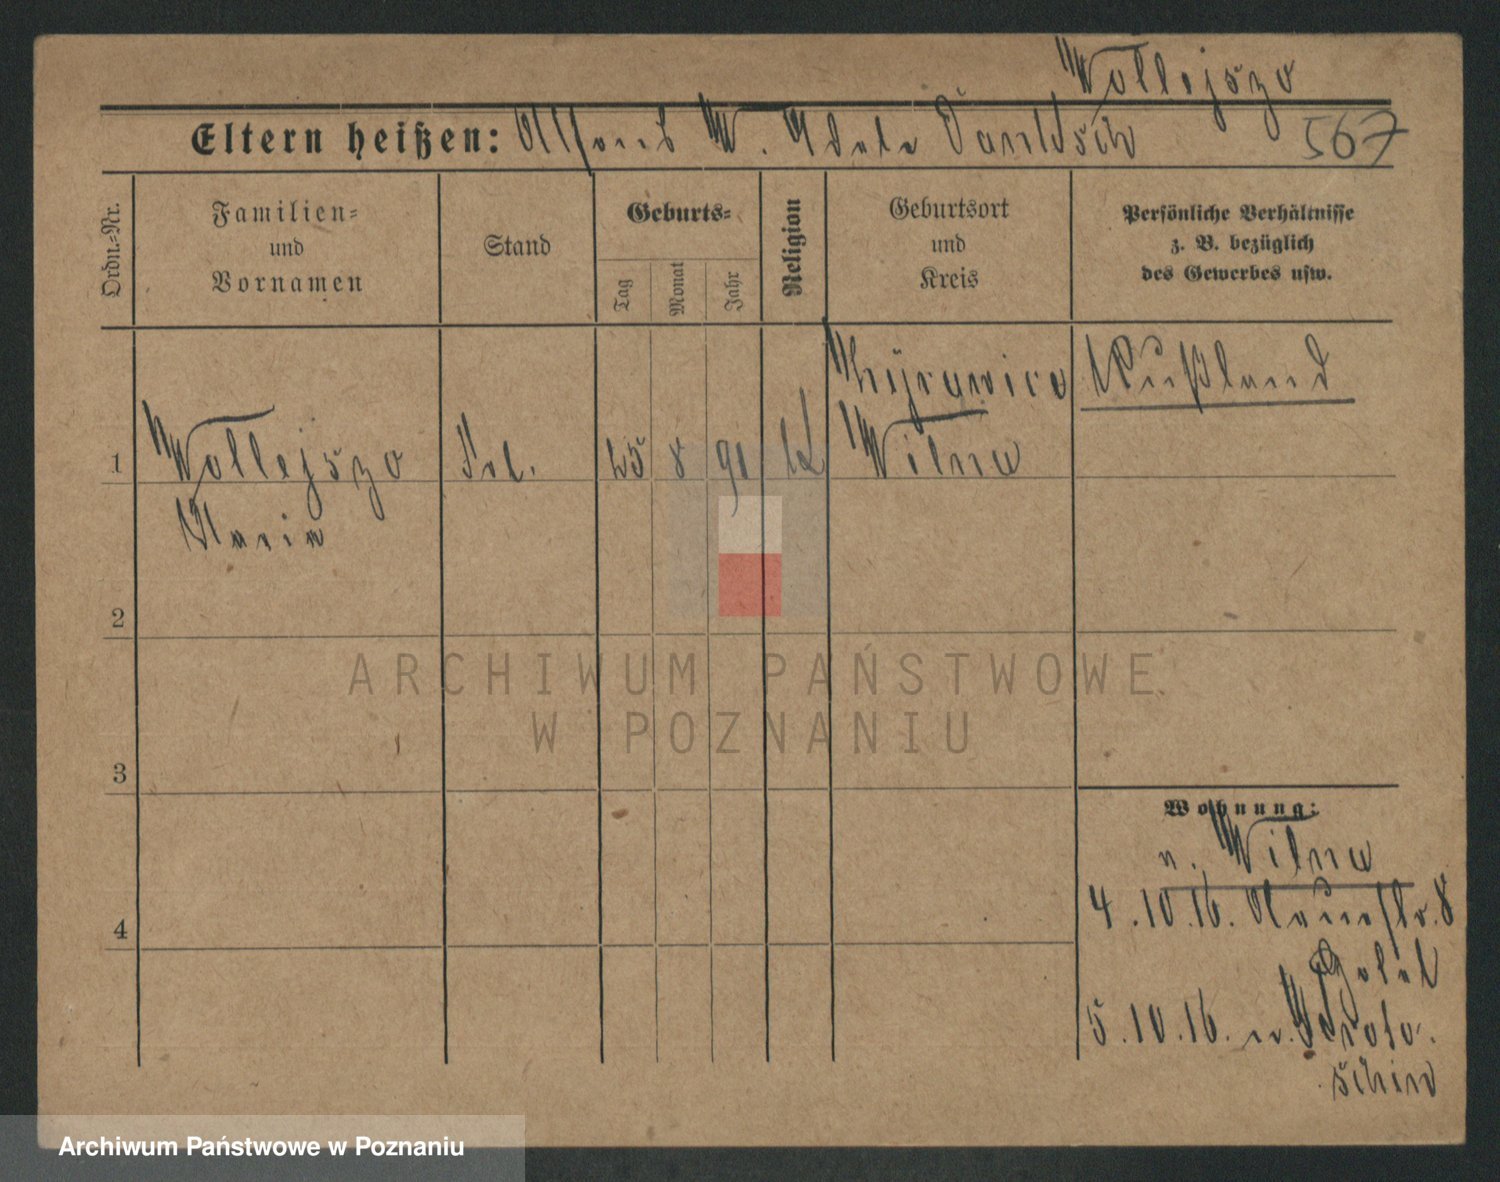 Wollejszo
Eltern heißen: Alfons W. Adele
567
Ordn.-Nr.
Familien-
und
Vornamen
Stand
Geburts-
Tag
Monat
Jahr
Religion
Geburtsort
und
Kreis
Persönliche Verhältnisse
z. B. bezüglich
des Gewerbes usw.
Rußland
1
Wollejszo
Frl.
25 8 91 k
Wilna
Maria
2
ARCHIWUM PAŃSTWOWE
W POZNANIU
3
Wohnung:
n. Wilna
4
4.10.16. 8
5.10.16. n. Kroto-
schin
Archiwum Państwowe w Poznaniu